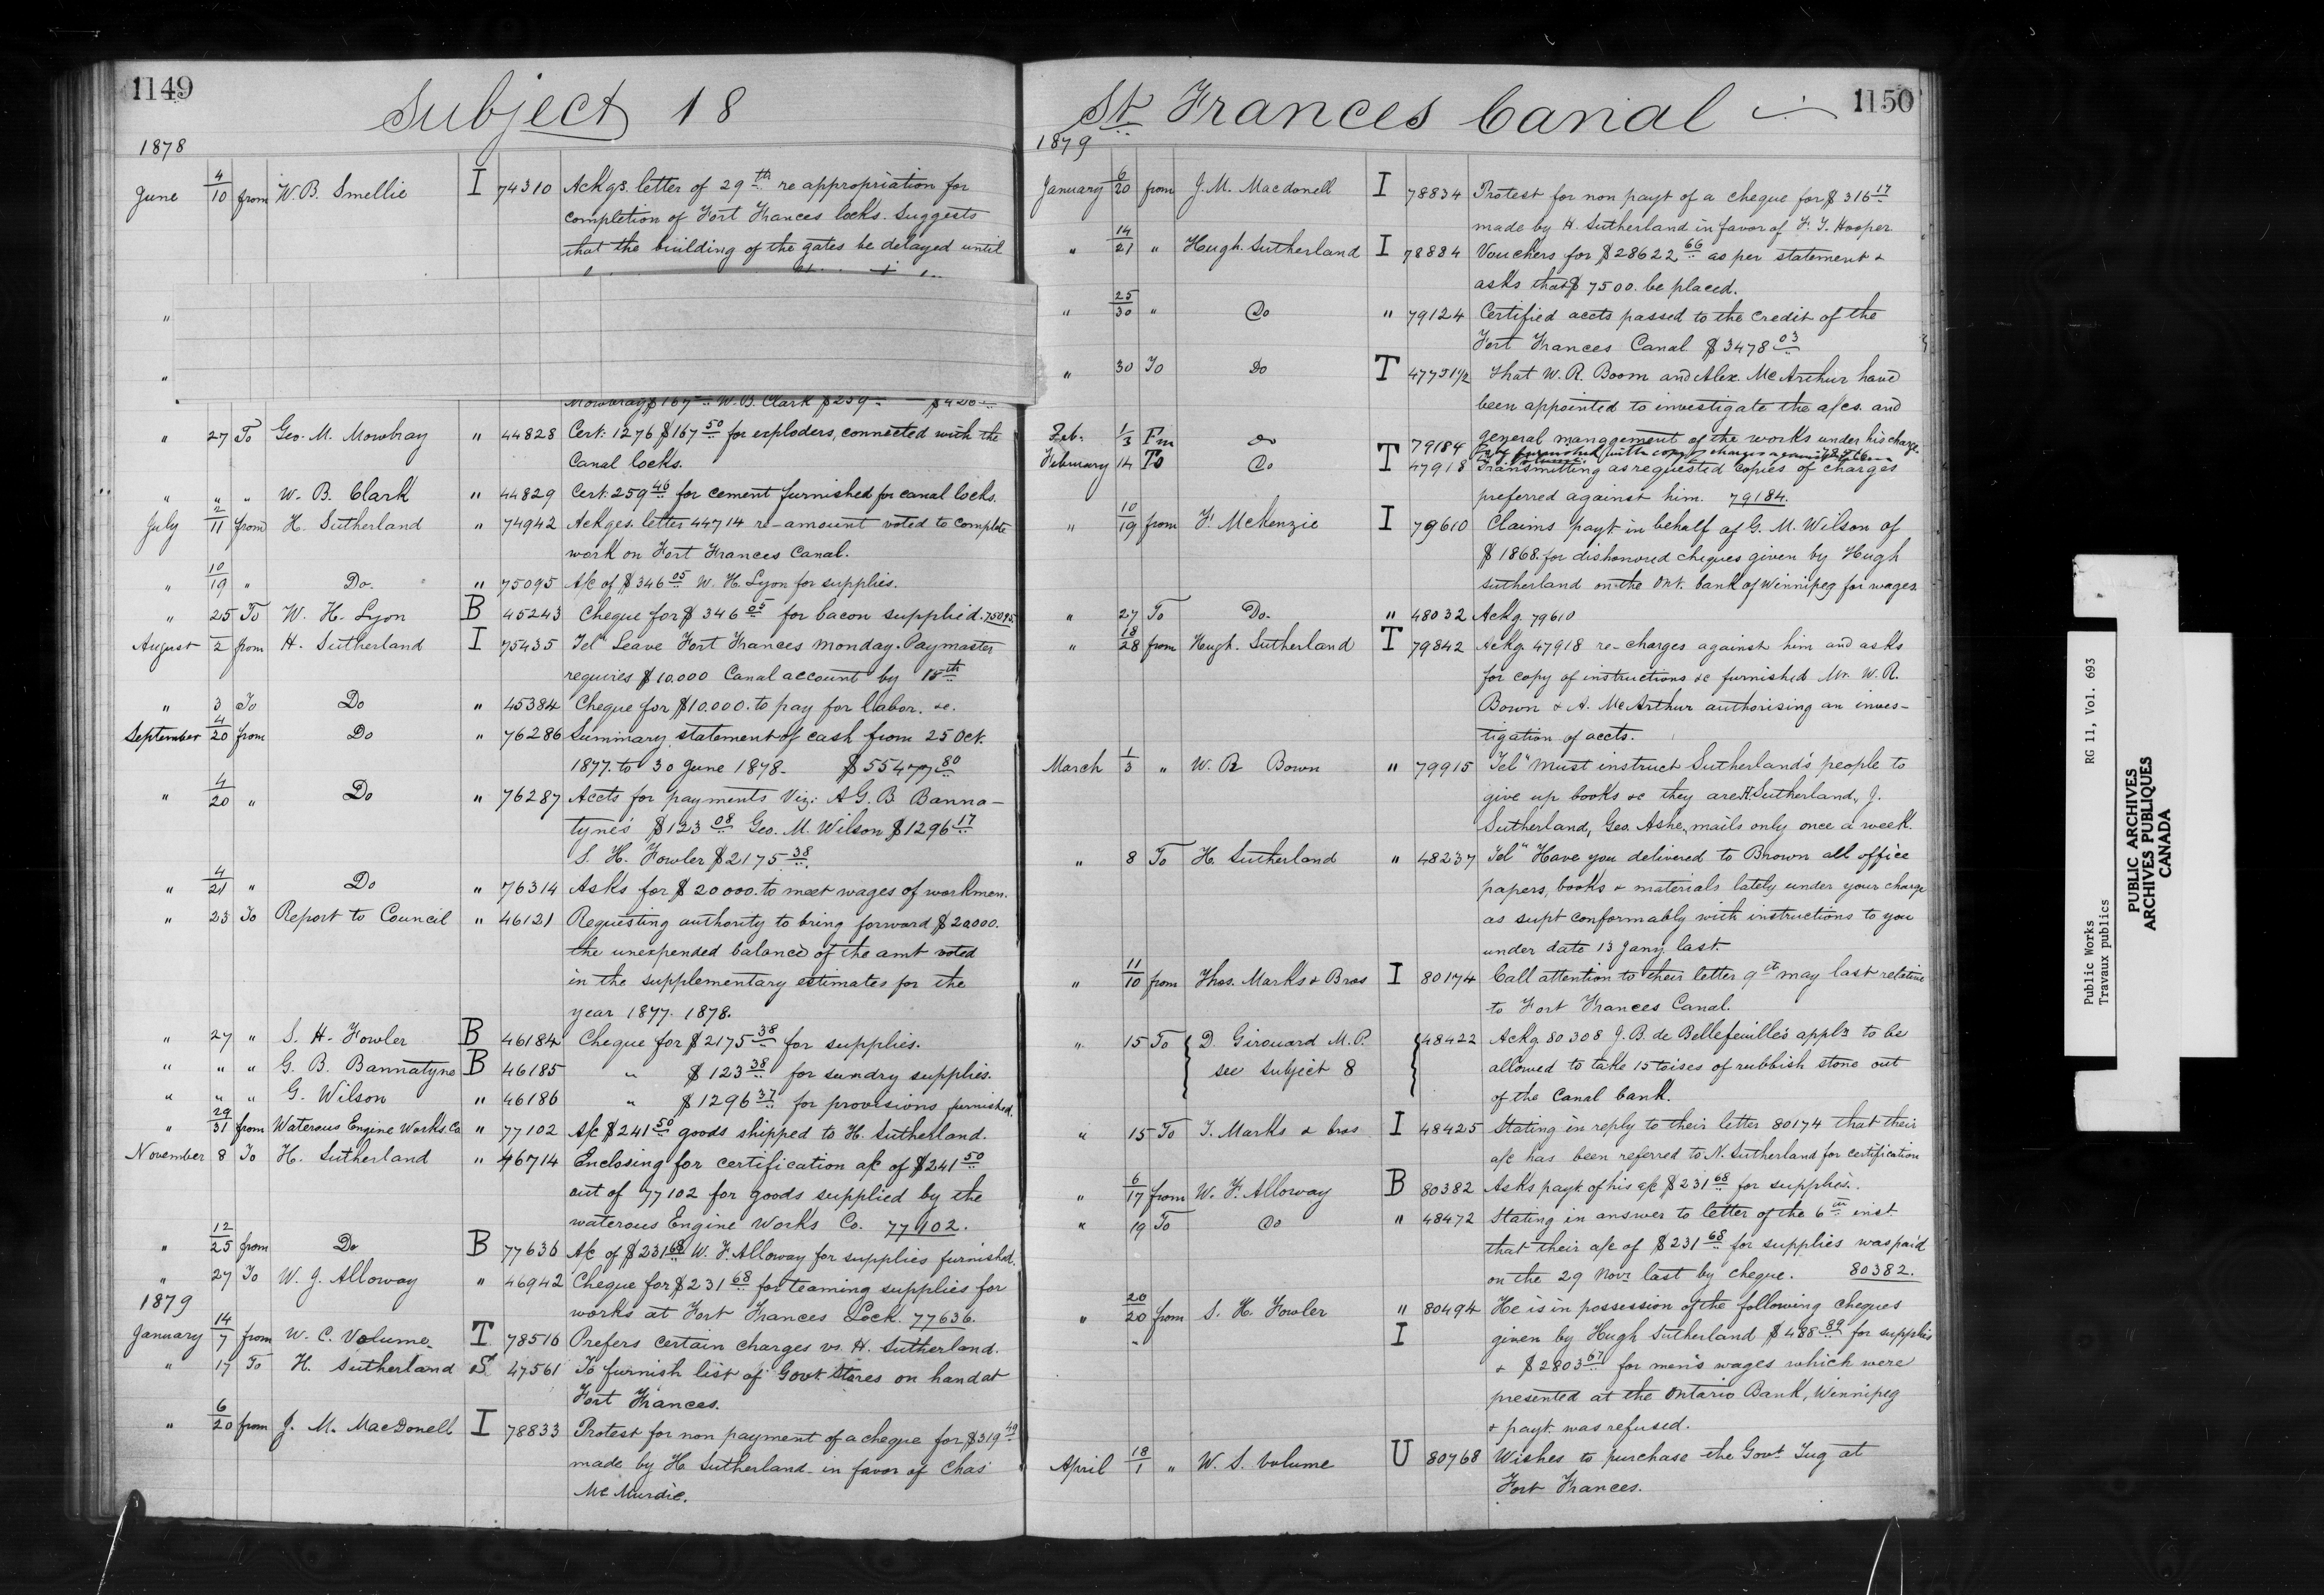 1149
Subject 18
1878
June 4/10 from W. B. Smellie I 74310 Ackgs. letter of 29th re appropriation for
completion of Fort Frances locks. Suggests
that the building of the gates be delayed until
"
"
Mowbray $167 W. B. Clark $259
" 27 To Geo. M. Mowbray " 44828 Cert: 1276 $167 50 for exploders, connected with the
Canal locks.
" " " W. B. Clark " 44829 Cert: 259 46 for cement furnished for canal locks.
July 2/11 from H. Sutherland " 74942 Ackges. letter 44714 re-amount voted to complete
work on Fort Frances Canal.
" 10/19 " Do. " 75095 A/c of $346 05 W. H. Lyon for supplies.
" 25 To W. H. Lyon B 45243 Cheque for $346 05 for bacon supplied. 75095
August 2 from H. Sutherland I 75435 Tel" Leave Fort Frances Monday. Paymaster
requires $10.000 Canal account by 15th
" 3 To Do " 45384 Cheque for $10.000. to pay for labor. &c.
September 4/20 from Do " 76286 Summary statement of cash from 25 Oct.
1877. to 30 June 1878. $55477 80
" 4/20 " Do " 76287 Accts for payments Viz: A G. B. Banna-
tyne's $123 08 Geo. M. Wilson $1296 17
S. H. Fowler $2175 38
" 4/21 " Do " 76314 Asks for $20000. to meet wages of workmen.
" 23 To Report to Council " 46121 Requesting authority to bring forward $20000.
the unexpended balance of the amt voted
in the supplementary estimates for the
year 1877. 1878.
" 27 " S. H. Fowler B 46184 Cheque for $2175 38 for supplies.
" " " G. B. Bannatyne B 46185 " $123 38 for sundry supplies.
" " " G. Wilson " 46186 " $1296 37 for provisions furnished.
" 29/31 from Waterous Engine Works Co " 77102 A/c $241 50 goods shipped to H. Sutherland.
November 8 To H. Sutherland " 46714 Enclosing for certification a/c of $241 50
out of 77102 for goods supplied by the
waterous Engine Works Co. 77102.
" 12/25 from Do B 77636 A/c of $231 68 W. F. Alloway for supplies furnished.
" 27 To W. J. Alloway " 46942 Cheque for $231 68 for teaming supplies for
works at Fort Frances Lock. 77636.
1879
January 14/7 from W. C. Volume T 78516 Prefers certain charges vs. H. Sutherland.
" 17 To H. Sutherland S 47561 To furnish list of Govt Stores on hand at
Fort Frances.
" 6/20 from J. M. MacDonell I 78833 Protest for non payment of a cheque for $319 49
made by H. Sutherland in favor of Chas
McMurdie.
St Frances Canal
1150
1879
January 6/20 from J. M. Macdonell I 78834 Protest for non payt of a cheque for $316 17
made by H. Sutherland in favor of F. T. Hooper
" 14/21 " Hugh. Sutherland I 78884 Vouchers for $28622 66 as per statement &
asks that $7500. be placed.
" 25/30 " Do " 79124 Certified accts passed to the credit of the
Fort Frances Canal $3478 03
" 30 To Do T 47751 1/2 That W. R. Boom and Alex. McArthur have
been appointed to investigate the a/cs. and
general management of the works under his charge
Feb. 1/3 Fm Do 79184
February 14 To Do T 47918 Transmitting as requested copies of charges
preferred against him. 79184.
" 10/19 from F. McKenzie I 79610 Claims payt in behalf of G. M. Wilson of
$1868. for dishonored cheques given by Hugh
Sutherland on the Ont. bank of Winnipeg for wages.
" 27 To Do. " 48032 Ackg. 79610
" 18/28 from Hugh. Sutherland T 79842 Ackg. 47918 re-charges against him and asks
for copy of instructions &c furnished Mr. W. R.
Bown & A. McArthur authorising an inves-
tigation of accts.
March 1/3 " W. R Bown " 79915 Tel" Must instruct Sutherland's people to
give up books &c they are H. Sutherland, J.
Sutherland, Geo. Ashe, mails only once a week.
" 8 To H. Sutherland " 48237 Tel" Have you delivered to Brown all office
papers, books & materials lately under your charge
as supt conformably with instructions to you
under date 13 Jany last.
" 11/10 from Thos. Marks & Bros I 80174 Call attention to their letter 9th May last relative
to Fort Frances Canal.
" 15 To D. Girouard M.P. 48422 Ackg 80308 J. B. de Bellefeuille's appls. to be
see Subject 8 allowed to take 15 toises of rubbish stone out
of the Canal bank.
" 15 To T. Marks & bros I 48425 Stating in reply to their letter 80174 that their
a/c has been referred to N. Sutherland for certification
" 6/17 from W. F. Alloway B 80382 Asks payt of his a/c $231 68 for supplies.
" 19 To Do " 48472 Stating in answer to letter of the 6th inst
that their a/c of $231 68 for supplies was paid
on the 29 Novr last by cheque. 80382.
" 20/20 from S. H. Fowler " 80494 He is in possession of the following cheques
I given by Hugh Sutherland $488 89 for supplies
& $2803 67 for men's wages which were
presented at the Ontario Bank, Winnipeg
& payt. was refused.
April 18/1 " W. S. Volume U 80768 Wishes to purchase the Govt Tug at
Fort Frances.
Public Works RG 11, Vol. 693
Travaux publics
PUBLIC ARCHIVES
ARCHIVES PUBLIQUES
CANADA